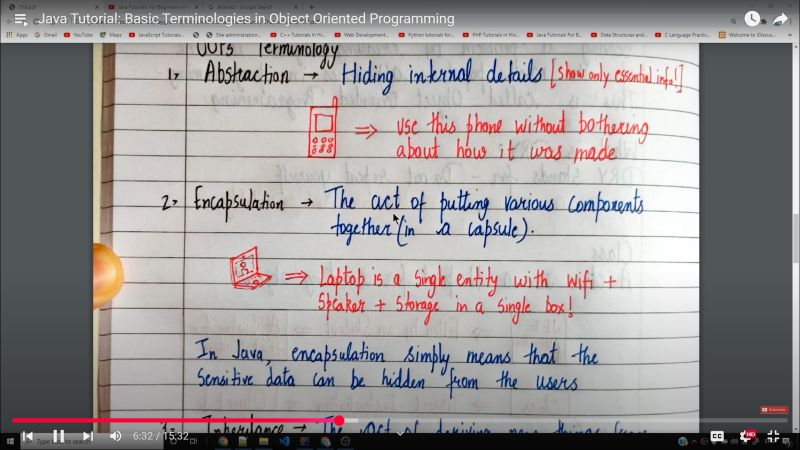 Java Tutorial: Basic Terminologies in Object Oriented Programming
Apps Gmail YouTube Maps JavaScript Tutorials... Site administration... C++ Tutorials In Hi... Web Development... Python tutorials for... PHP Tutorials in Hin... Java Tutorials For B... Data Structures and... C Language Practic... Welcome to iDiscu...
OOPs Terminology
1, Abstraction → Hiding internal details [Show only essential info!]
⇒ Use this phone without bothering
about how it was made
2, Encapsulation → The act of putting various components
together (in a capsule).
⇒ Laptop is a single entity with Wifi +
Speaker + Storage in a single box!
In Java, encapsulation simply means that the
Sensitive data can be hidden from the users
Subscribe
Inheritance → The act of deriving new things from
Type here to search
6:32 / 15:32
HD